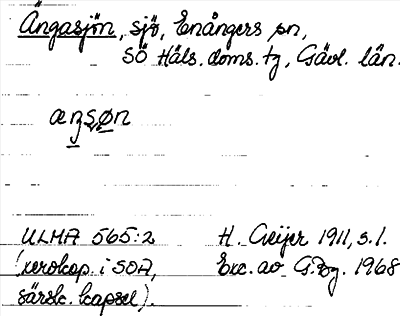 Ängasjön, sjö, Enångers sn,
SÖ Häls. doms. tg, Gävl. län.
æŋsøn
ULMA 565:2 H. Geijer 1911, s. 1.
(xerokop. i SOA, Exc. av G. Bg. 1968
särsk. kapsel).